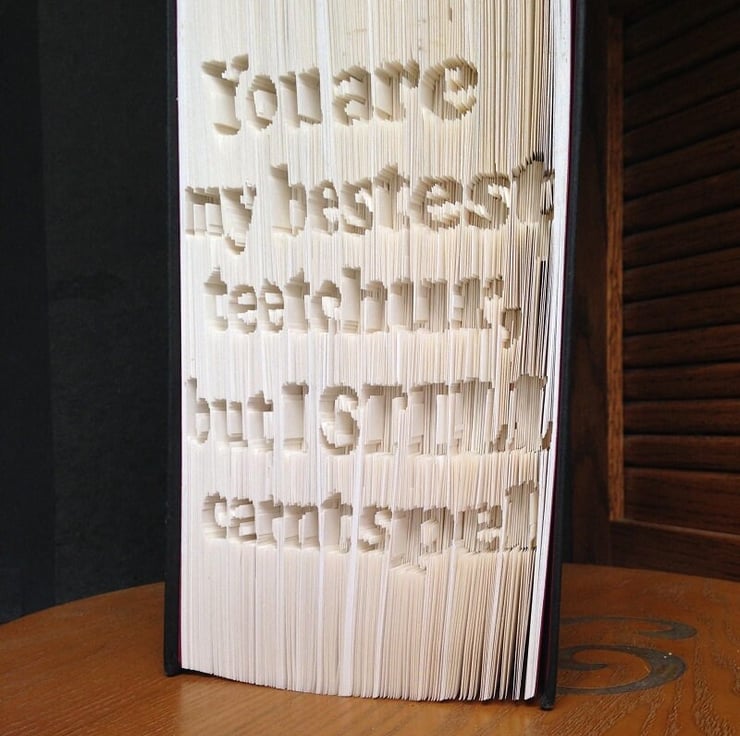 You are
my bestest
teetchur,
but I STILL
carnt spel